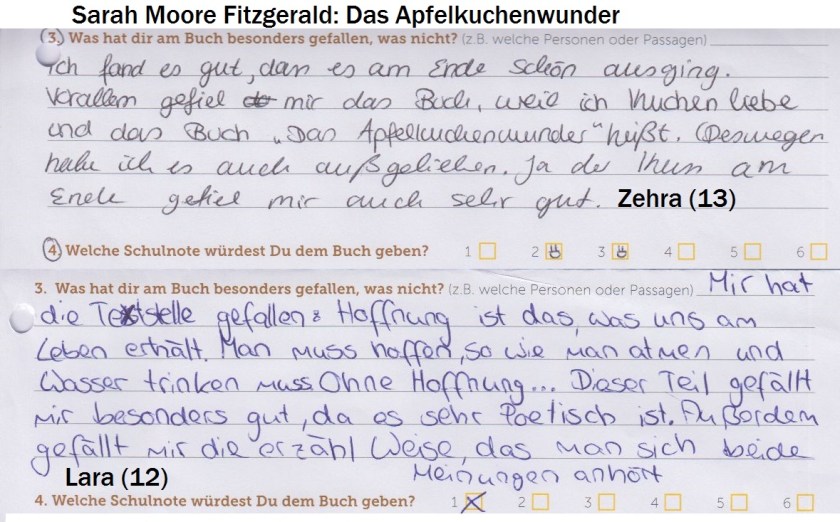 Sarah Moore Fitzgerald: Das Apfelkuchenwunder
3. Was hat dir am Buch besonders gefallen, was nicht? (z.B. welche Personen oder Passagen)
Ich fand es gut, dass es am Ende schön ausging.
Vorallem gefiel mir das Buch, weil ich Kuchen liebe
und das Buch „Das Apfelkuchenwunder“ heißt. (Deswegen
habe ich es auch außgeliehen. Ja der Kuss am
Ende gefiel mir auch sehr gut. Zehra (13)
4. Welche Schulnote würdest Du dem Buch geben? 1 2 3 4 5 6
3. Was hat dir am Buch besonders gefallen, was nicht? (z.B. welche Personen oder Passagen) Mir hat
die Textstelle gefallen: Hoffnung ist das, was uns am
Leben erhält. Man muss hoffen, so wie man atmen und
Wasser trinken muss Ohne Hoffnung... Dieser Teil gefällt
mir besonders gut, da es sehr Poetisch ist. Außerdem
gefällt mir die erzähl Weise, das man sich beide
Meinungen anhört
Lara (12)
4. Welche Schulnote würdest Du dem Buch geben? 1 2 3 4 5 6